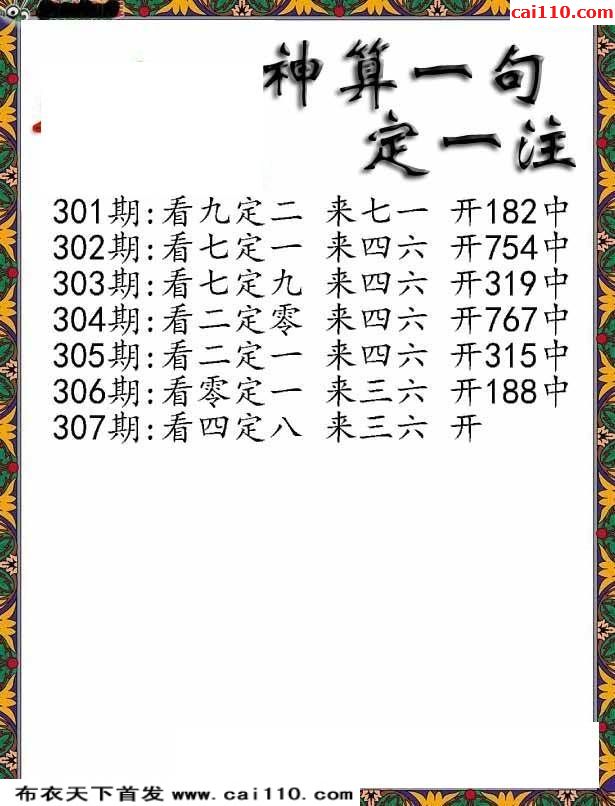 cai110.com
神算一句
定一注
301期:看九定二 来七一 开182中
302期:看七定一 来四六 开754中
303期:看七定九 来四六 开319中
304期:看二定零 来四六 开767中
305期:看二定一 来四六 开315中
306期:看零定一 来三六 开188中
307期:看四定八 来三六 开
布衣天下首发 www.cai110.com